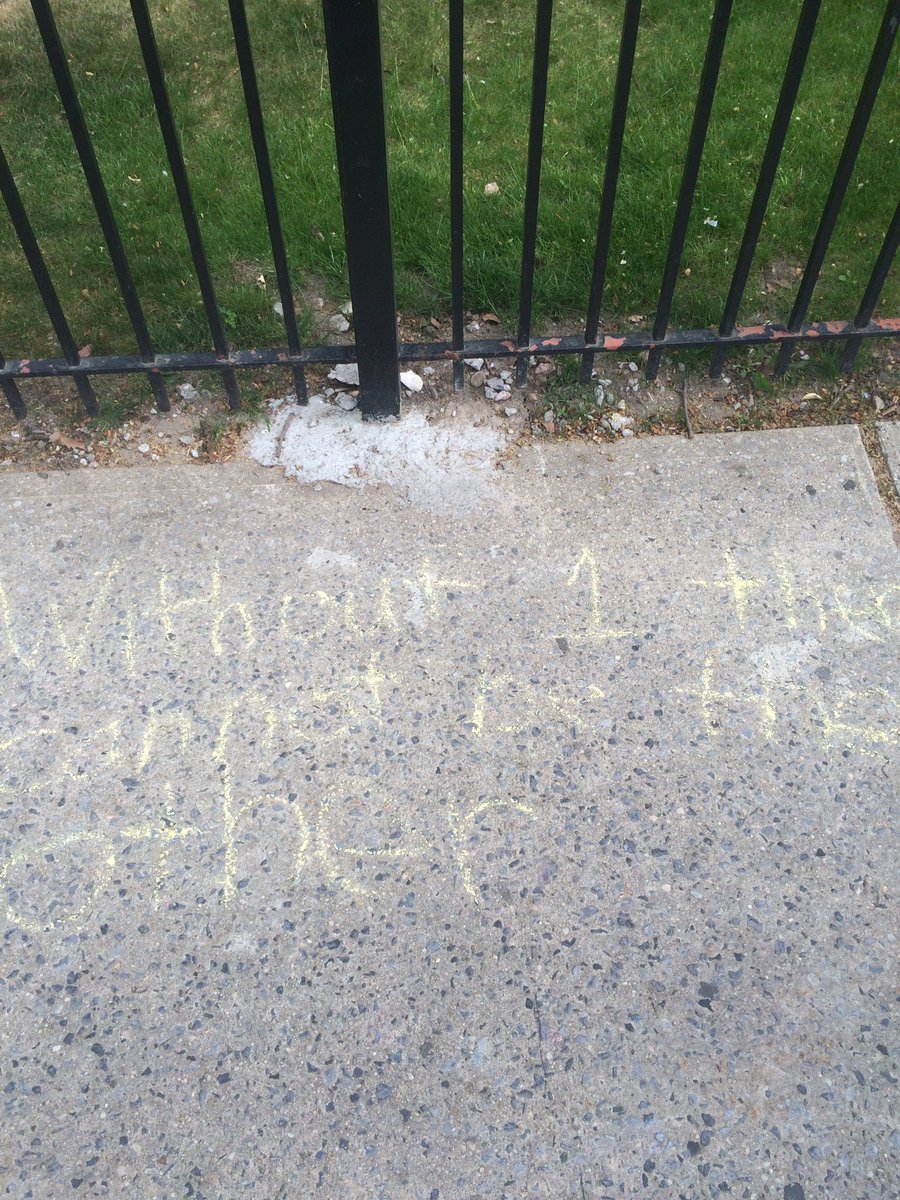 Without 1 the
cannot be tHE
other